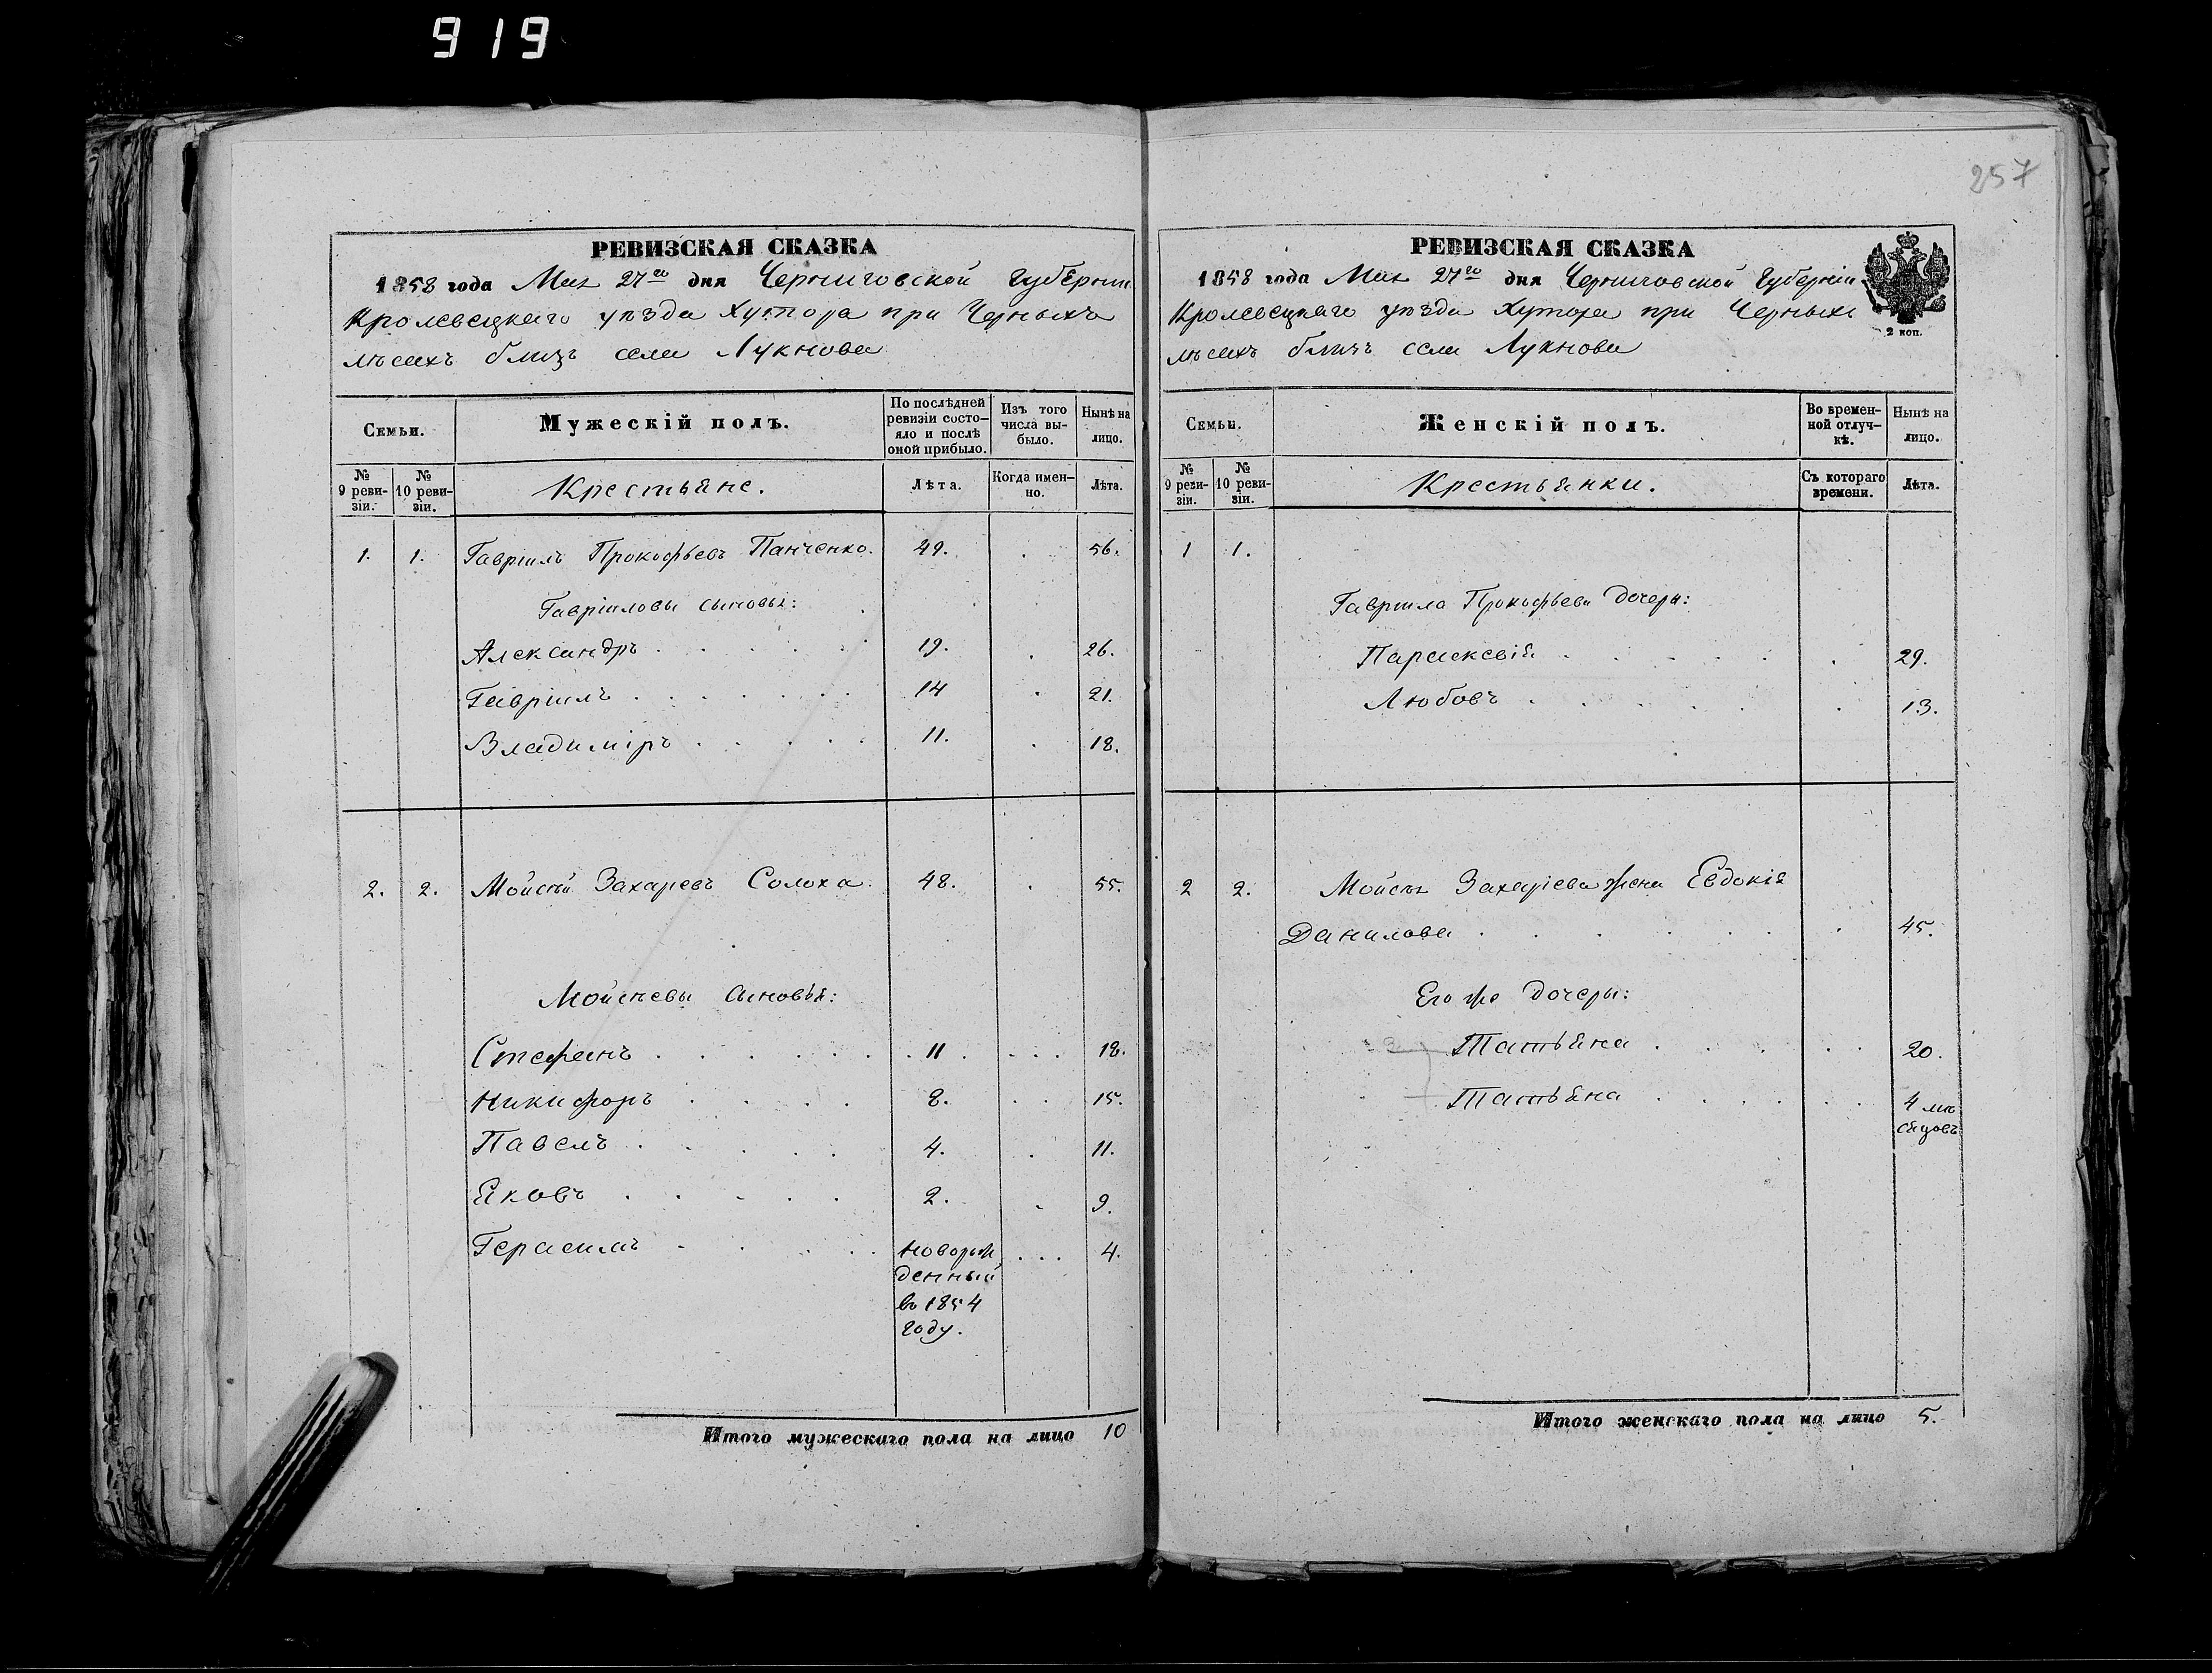 919
257
РЕВИЗСКАЯ СКАЗКА
1858 года Мая 27го дня Черниговской Губерніи
Кролевецкаго уѣзда Хутора при Черныхъ
лѣсахъ близъ села Лукнова
Семьи.
Мужескій полъ.
По послѣдней ревизіи состояло и послѣ оной прибыло.
Изъ того числа выбыло.
Нынѣ на лицо.
№ 9 ревизіи.
№ 10 ревизіи.
Крестьяне.
Лѣта.
Когда именно.
Лѣта.
1. 1. Гавріилъ Прокофьевъ Панченко. 49. 56.
Гавріиловы сыновья:
Александръ 19. 26.
Гавріилъ 14 21.
Владиміръ 11. 18.
2. 2. Мойсѣй Захарьевъ Солоха. 48. 55.
Мойсѣевы сыновья:
Стефанъ 11 18.
Никифоръ 8. 15.
Павелъ 4. 11.
Яковъ 2. 9.
Герасимъ новорож 4.
денный
въ 1854
году.
Итого мужескаго пола на лицо 10
РЕВИЗСКАЯ СКАЗКА
1858 года Мая 27го дня Черниговской Губерніи
Кролевецкаго уѣзда Хутора при Черныхъ
2 коп.
лѣсахъ близъ села Лукнова
Семьи.
Женскій полъ.
Во временной отлучкѣ.
Нынѣ на лицо.
№ 9 ревизіи.
№ 10 ревизіи.
Крестьянки.
Съ котораго времени.
Лѣта.
1 1.
Гавріила Прокофьева дочери:
Параскевія 29.
Любовъ 13.
2 2. Мойсѣя Захаріева жена Евдокія
Данилова 45.
Его же дочери:
Татьяна 20.
Татьяна 4 мѣ
сяцовъ
Итого женскаго пола на лицо 5.